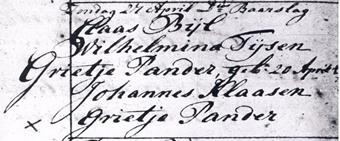 Zondag 27 April Ds Baarslag
Claas Bijl
Wilhelmina Tijsen
Grietje Pander geb: 20 April
Johannes Klaasen
x Grietje Pander